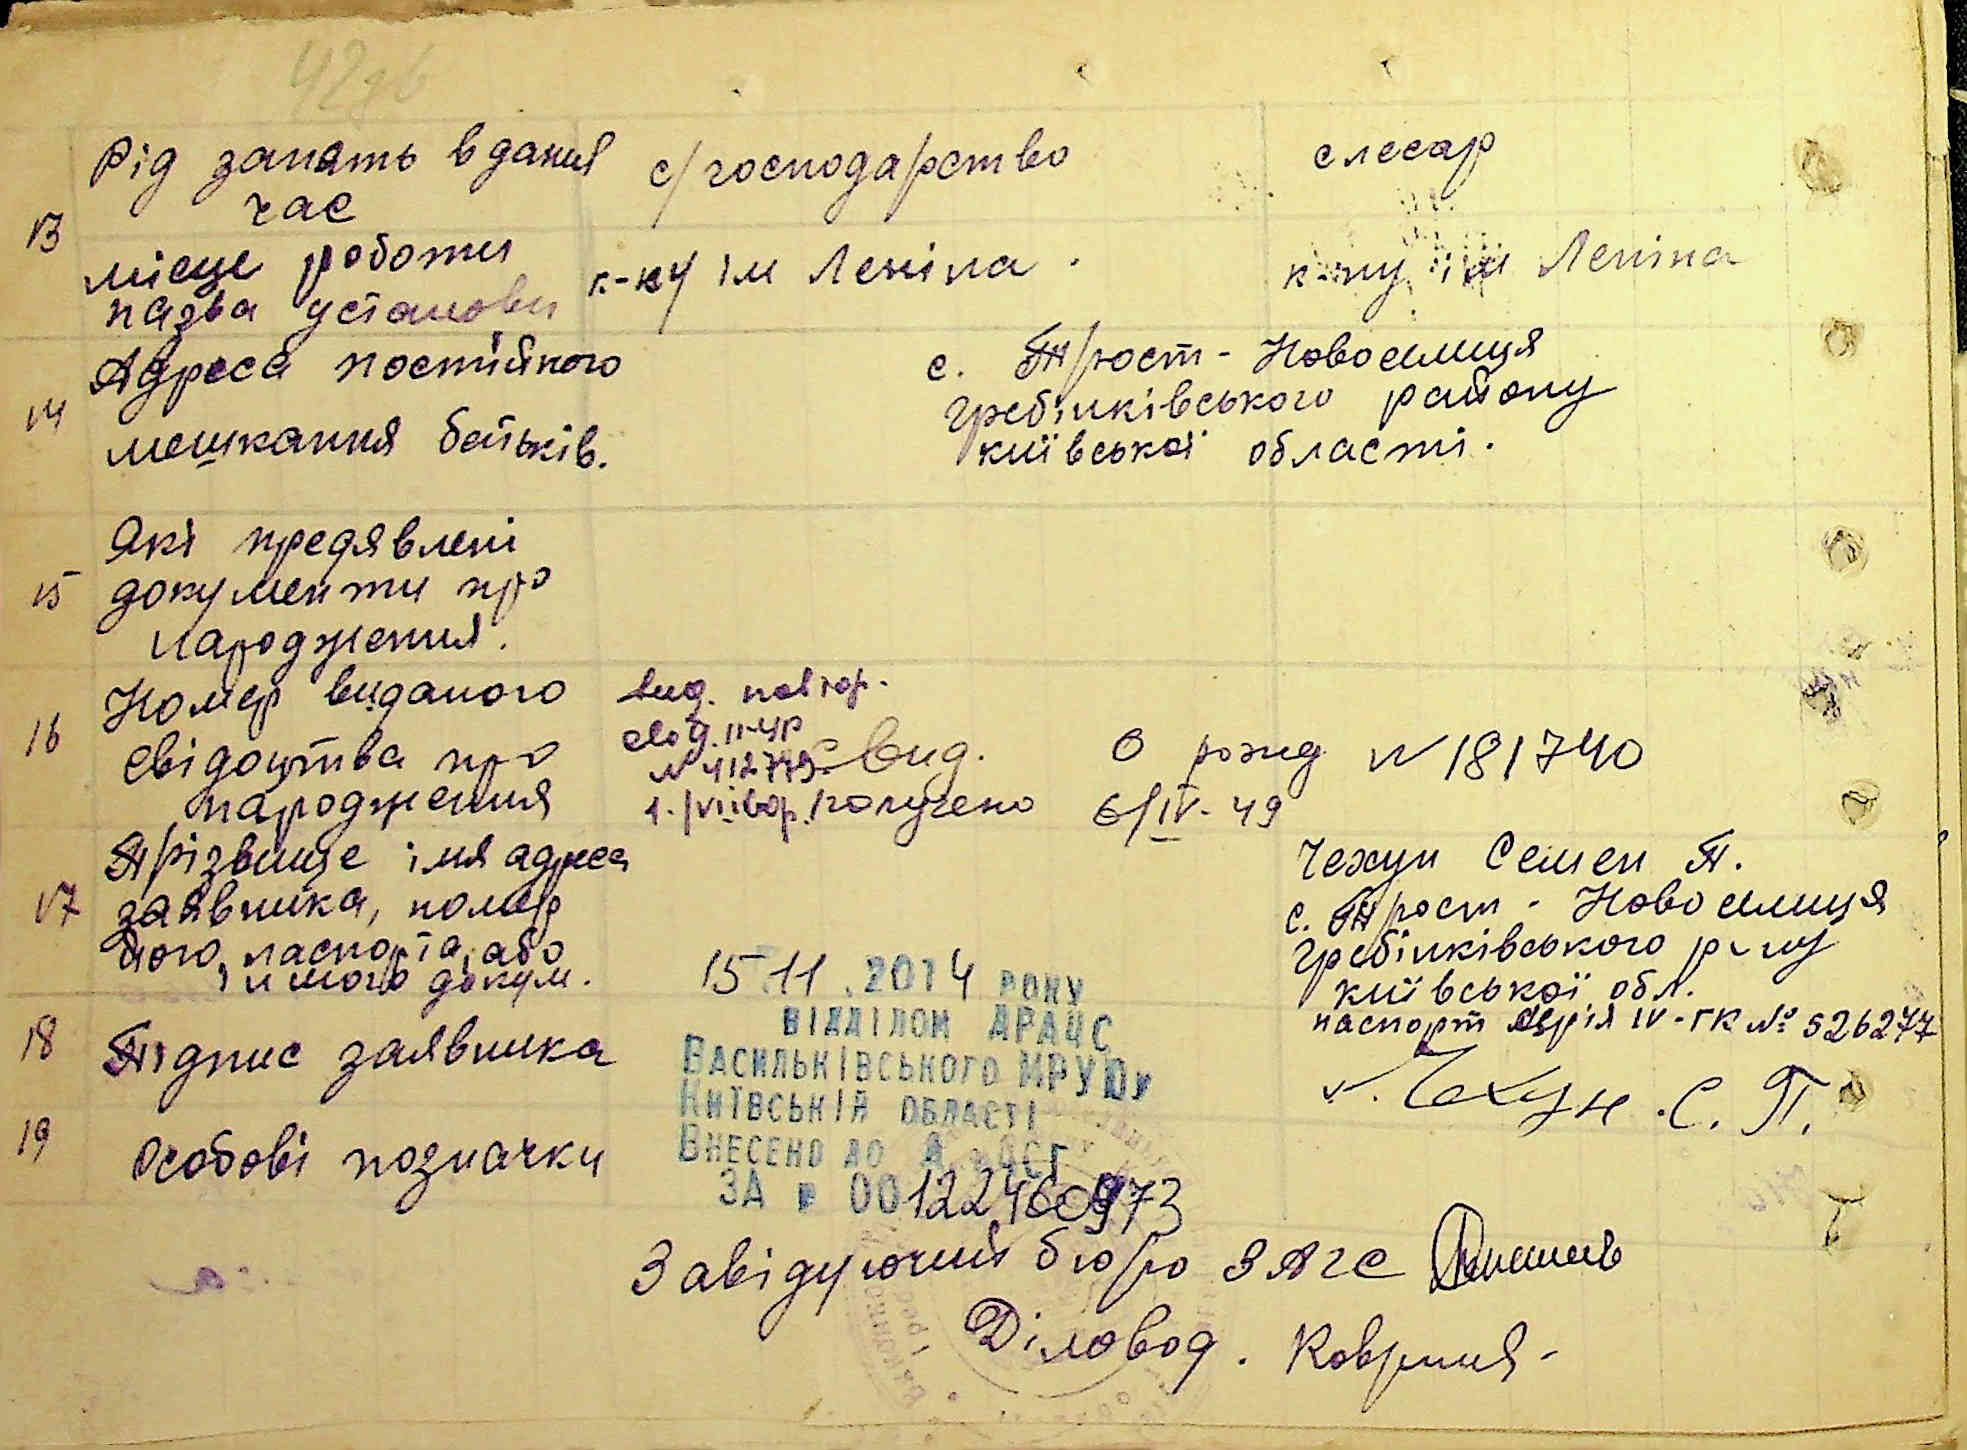 Рід занять в даний с/господарство слесар
час
13
місце роботи к-ку ім Леніна. к-пу ім Леніна
назва установи
Адреса постійного с. Прост-Новоселиця
14 Гребінківського району
мешкання батьків. київської області.
Які предявлені
15 документи про
народження.
Номер виданого вид. повтор.
16 свідоцтва про свід. II-УР Свид. О рожд N 181740
№ 412779
народження получено 6/IV-49
Прізвище імя адреса Чехун Семен П.
17 заявника, номер с. Прост-Новоселиця
його паспорта, або Гребінківського р-ну
іншого докум. київської обл.
паспорт Серія IV-ГК № 526277
15 11 .2014 РОКУ
ВІДДІЛОМ ДРАЦС
18 Підпис заявника ВАСИЛЬКІВСЬКОГО МРУЮ У
Чехун. С. П.
КИЇВСЬКІЙ ОБЛАСТІ
19 Особові позначки ВНЕСЕНО ДО ДРАЦСГ
ЗА № 0012246
Завідуючий бюро ЗАГС
Діловод.